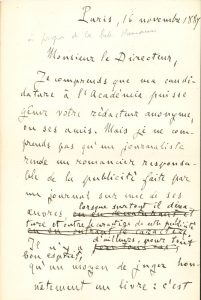 Paris, 16 novembre 1887
à propos de la Bête Humaine
Monsieur le Directeur,
Je comprends que ma candi-
dature à l'Académie puisse
gêner votre rédacteur anonyme
ou ses amis. Mais je ne com-
prends pas qu'un journaliste
rende un romancier responsa-
ble de la publicité faite par
un journal sur une de ses
œuvres, lorsque surtout il
Il n'y a d'ailleurs, pour tout
bon esprit,
qu'un moyen de juger hon-
nêtement un livre : c'est